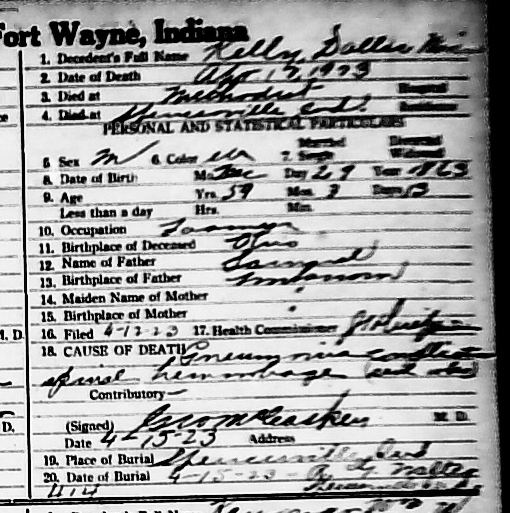 Fort Wayne, Indiana
1. Decedent's Full Name Kelly, Dallas
2. Date of Death Apr 12, 1923
3. Died at Methodist Hospital
4. Died at Spencerville Ind. Residence
PERSONAL AND STATISTICAL PARTICULARS
Married Divorced
5. Sex M 6. Color W 7. Single Widowed
8. Date of Birth Mo. Dec Day 29 Year 1863
9. Age Yrs. 59 Mos. 3 Days 13
Less than a day Hrs. Min.
10. Occupation Farmer
11. Birthplace of Deceased Ohio
12. Name of Father Samuel
13. Birthplace of Father Unknown
14. Maiden Name of Mother
15. Birthplace of Mother
M. D. 16. Filed 4-12-23 17. Health Commissioner
18. CAUSE OF DEATH Pneumonia
spinal hemorrhage
Contributory
D. (Signed) M. D.
Date 4-15-23 Address
19. Place of Burial Spencerville Ind
20. Date of Burial 4-15-23
414